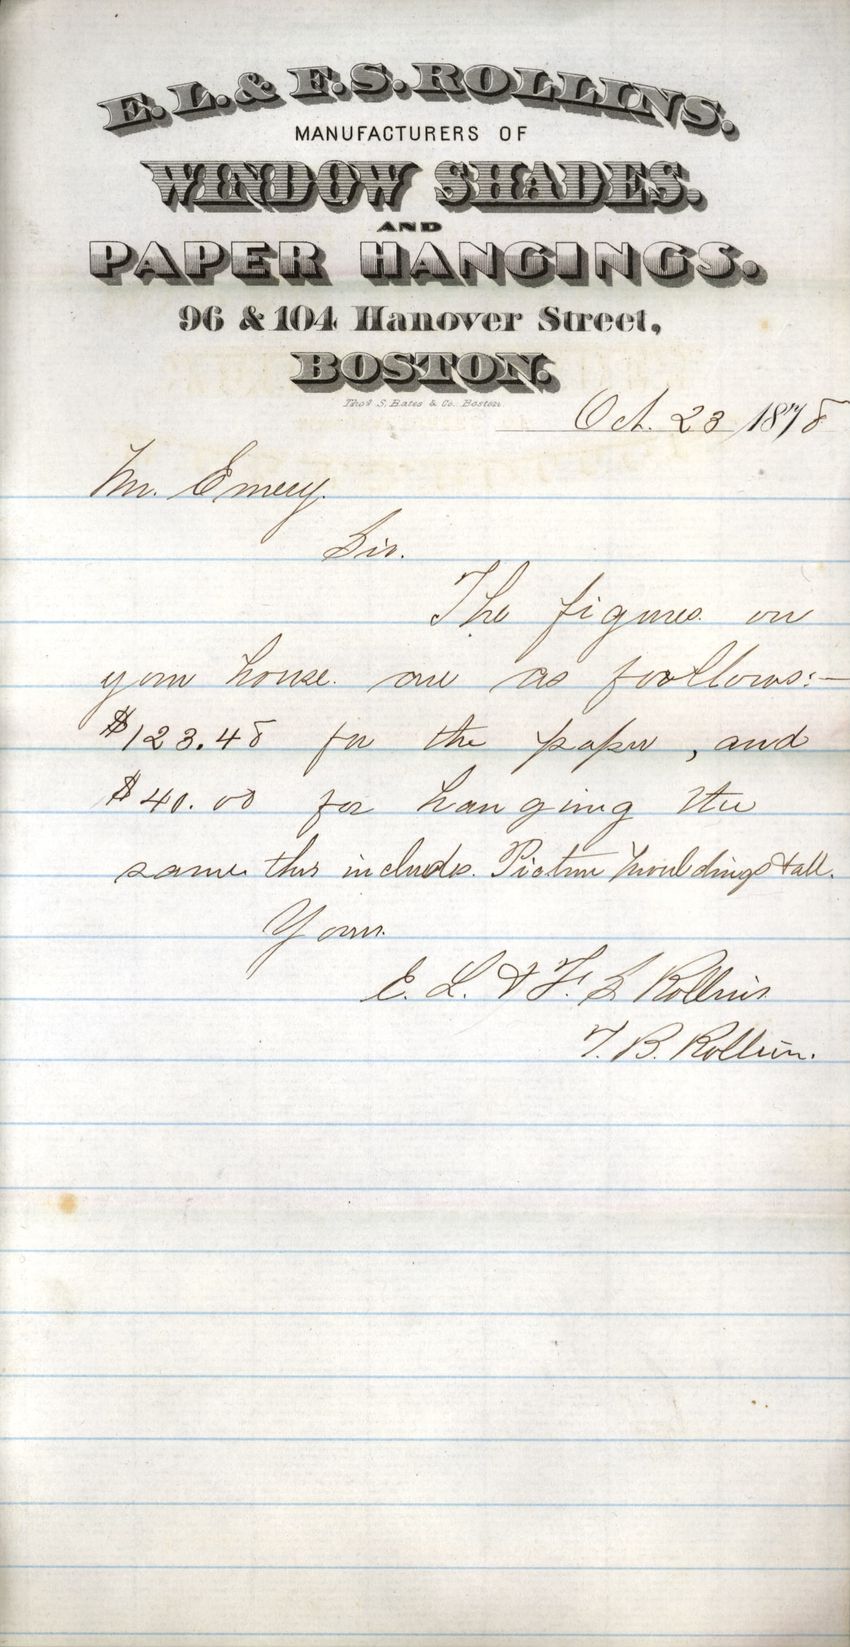 E. L. & F. S. ROLLINS.
MANUFACTURERS OF
WINDOW SHADES.
AND
PAPER HANGINGS.
96 & 104 Hanover Street,
BOSTON.
Thos. S. Bates & Co. Boston
Oct. 23 1878
Mr. Emery.
Sir.
The figures on
your house are as foollows:—
$123.48 for the paper, and
$40.00 for hanging the
same this includes Picture Mouldings & all.
Yours.
E. L. & F. S Rollins
F. B. Rollins.